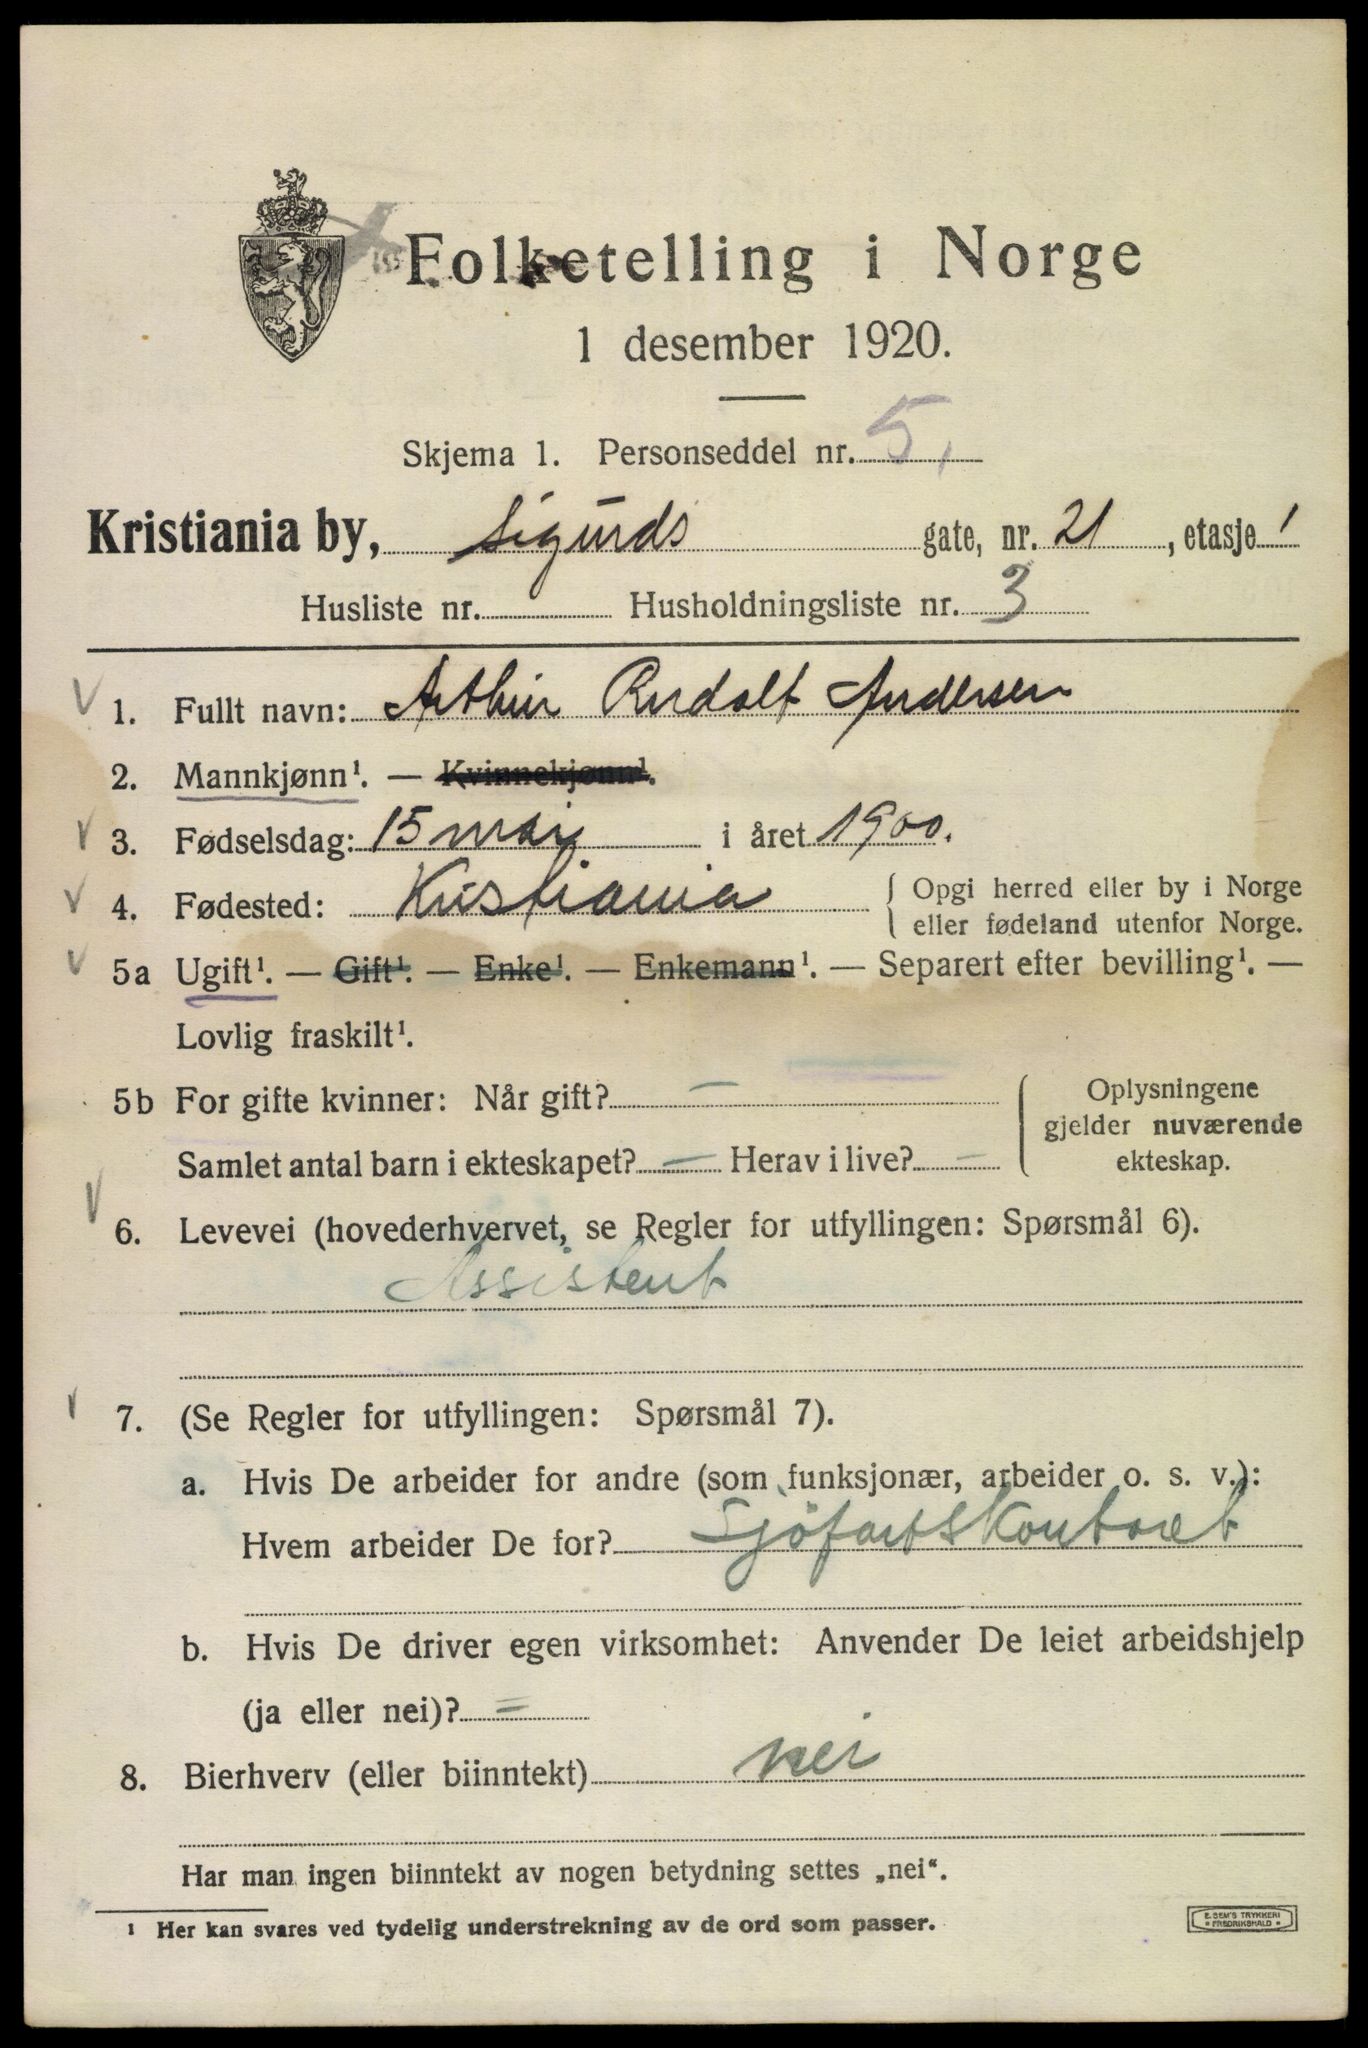 Folketelling i Norge
1 desember 1920.
Skjema 1. Personseddel nr. 5,
Kristiania by, Sigurds gate, nr. 21, etasje 1
Husliste nr. Husholdningsliste nr. 3
1. Fullt navn: Arthur Rudolf Andersen
2. Mannkjønn¹. — Kvinnekjønn¹.
3. Fødselsdag: 15 mai i året 1900.
4. Fødested: Kristiania { Opgi herred eller by i Norge
eller fødeland utenfor Norge.
5a Ugift¹. — Gift¹. — Enke¹. — Enkemann¹. — Separert efter bevilling¹. —
Lovlig fraskilt¹.
5b For gifte kvinner: Når gift? — { Oplysningene
gjelder nuværende
Samlet antal barn i ekteskapet? — Herav i live? — ekteskap.
6. Levevei (hovederhvervet, se Regler for utfyllingen: Spørsmål 6).
Assistent
7. (Se Regler for utfyllingen: Spørsmål 7).
a. Hvis De arbeider for andre (som funksjonær, arbeider o. s. v.):
Hvem arbeider De for? Sjöfartskontoret
b. Hvis De driver egen virksomhet: Anvender De leiet arbeidshjelp
(ja eller nei)? =
8. Bierhverv (eller biinntekt) nei
Har man ingen biinntekt av nogen betydning settes „nei“.
¹ Her kan svares ved tydelig understrekning av de ord som passer.
E. SEM'S TRYKKERI
* FREDRIKSHALD *